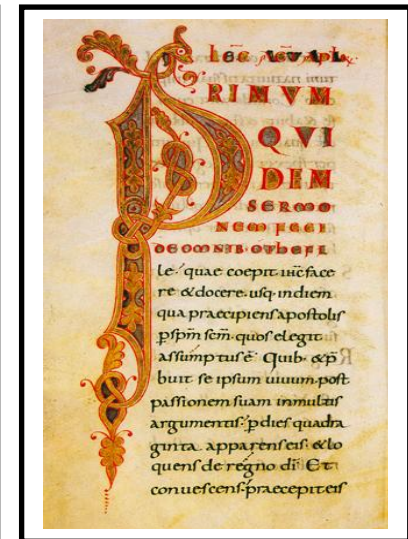 PRIMUM
QUI
DEM
SERMO
NEM FECI
DE OMNIB. O THEFI
le. quae coepit ihc face
re & docere. usq. in diem
qua praecipiens apostolis
p spm scm. quos elegit
assumptus ē. Quib. & p
buit se ipsum uiuum. post
passionem suam in multis
argumentis. p dies quadra
ginta. apparens eis. & lo
quens de regno di. Et
conuescens. praecepit eis